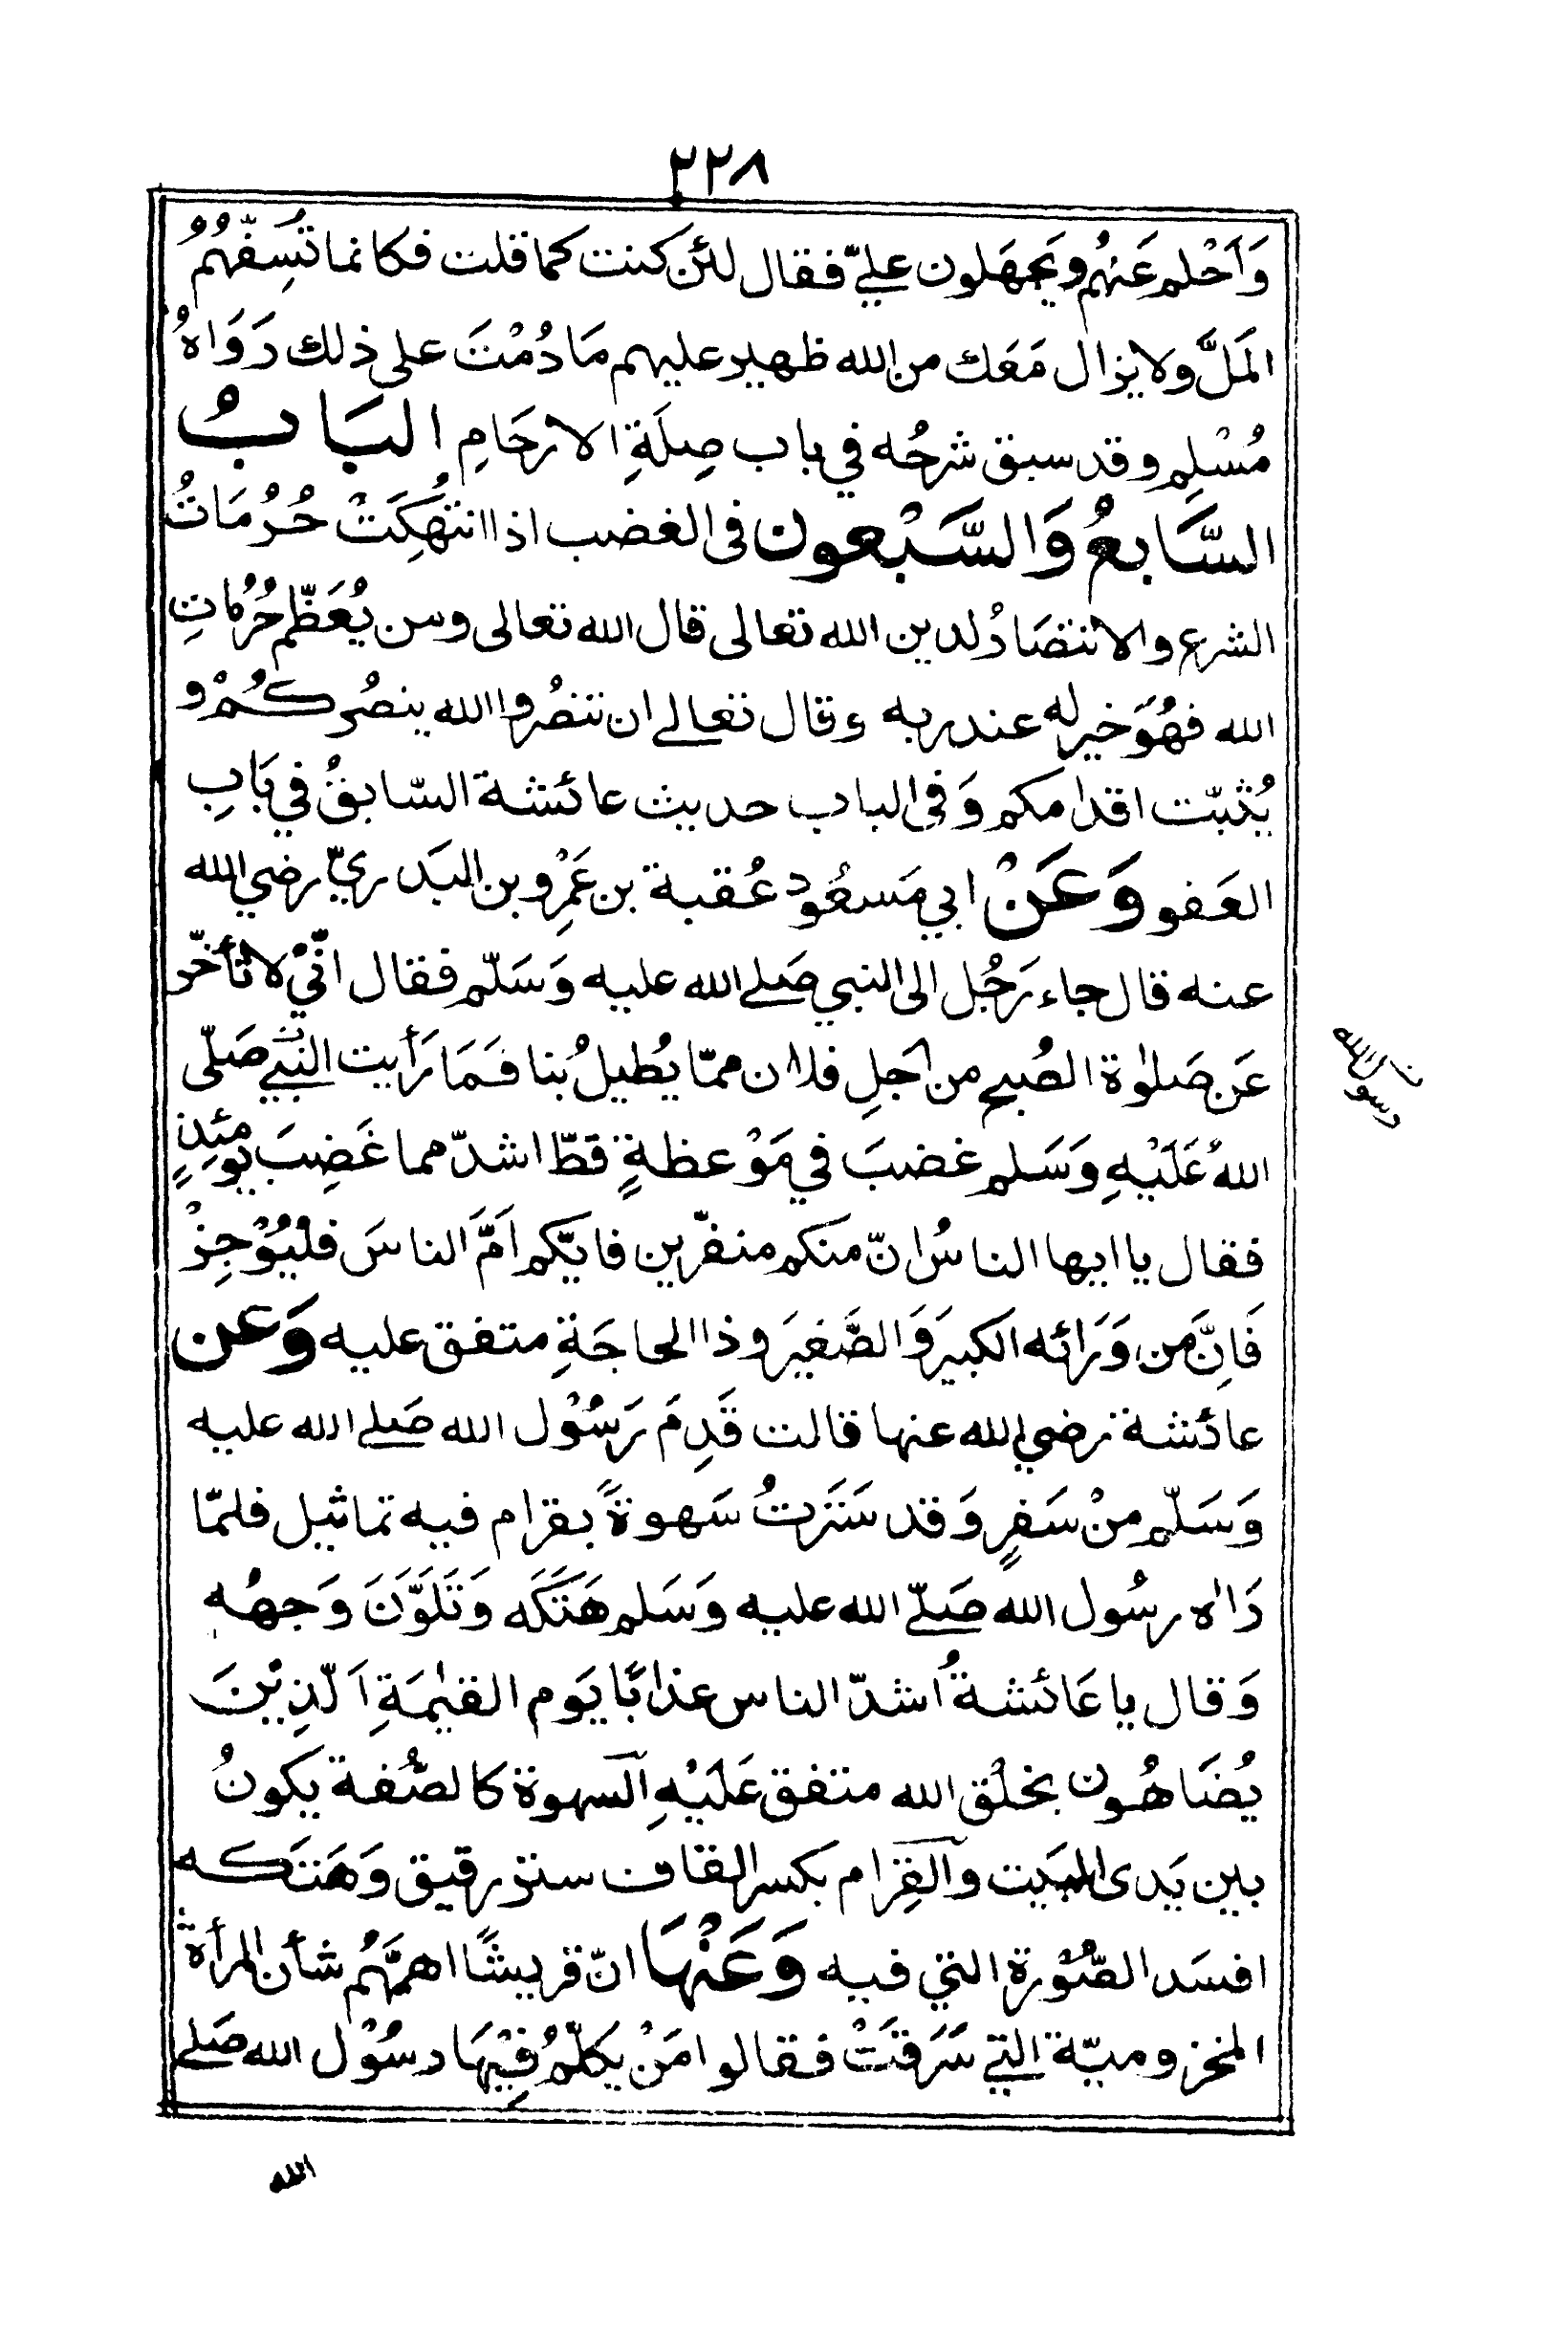 ٢٢٨
وَاَحْلم عَنهُم ويَجهَلون عليّ فقال لئن كنت كما قلت فكانما تُسِفّهُمُ
المَلَّ ولا يزال مَعَك من الله ظهير عليهم مَا دُمْتَ على ذلك رَوَاهُ
مُسْلِم وقد سبق شرحُه في باب صِلَةِ الارحَامِ البَابُ
السَّابعُ وَالسَّبْعون في الغضب اذا انتُهِكَتْ حُرُمَاتُ
الشرع والانتصَارُ لدين الله تعالى قال الله تعالى ومن يُعَظّم حُرُمَاتِ
الله فهُوَ خير له عند ربه وقال تعالے ان تنصُروا الله ينصُركُمْ و
يُثبّت اقدامكم وَفي الباب حديث عائشة السّابقُ في بَابِ
العَفو وَعَنْ ابي مَسعُود عُقبة بن عَمْرِو بن البَدريّ رضي الله
عنه قال جاء رَجُل الى النبي صَلے الله عليه وَسَلّم فقال انّيْ لاتأخّر
عَن صَلوٰة الصُبح من اَجلِ فلان ممّا يُطيلُ بنا فَمَا رَأيت النّبيَ صَلّى
اللهُ عَلَيْهِ وَسَلم غضبَ في مَوْعظةٍ قطّ اشدّ مما غَضِبَ يومَئِذٍ
فقال يا ايها الناسُ انّ منكم منفّرين فايّكم اَمَّ الناسَ فلْيُوْجِزْ
فَاِنَّ من وَرَائه الكبيرَ وَالصَّغيرَ وذا الحاجَةِ متفق عليه وَعن
عائشة رضي الله عنها قالت قَدِمَ رَسُوْل الله صَلے الله عليه
وَسَلّم منْ سَفرٍ وَقد سَتَرتُ سَهوةً بقرام فيه تماثيل فلمّا
رَاٰه رسُول الله صَلّے الله عليه وَسَلم هَتَكَه وَتَلَوَّنَ وَجهُه
وَقال يا عَائشةُ اَشدّ الناس عذابًا يَوم القيٰمَةِ اَلّذِيْنَ
يُضَاهُون بخلْق الله متفق عَلَيْهِ السهوة كالصُّفة يكونُ
بين يَدى البَيت والقِرام بكسر القاف ستر رقيق وَهَتَكه
افسَد الصُّوْرة التي فيه وَعَنْهَا انّ قريشًا اهمَّهُم شأن المرأة
المخزوميّة التے سَرَقَتْ فقالوا مَنْ يكلّمُ فِيْهَا رسُوْل الله صَلے
الله
نـ
رسول الله